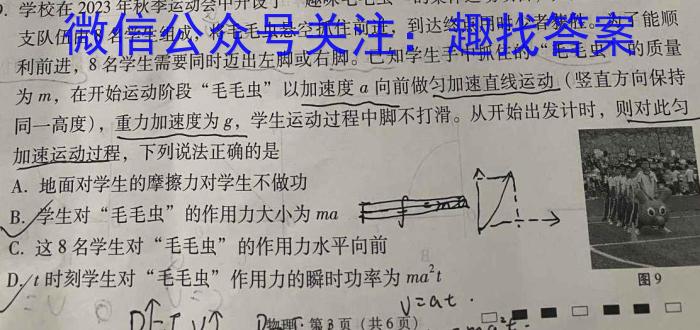 学校在2023年秋季运动会中开设了
支队伍由8名学生组成，将毛毛虫悬空抓住前进，到达终点用时少者获胜。为了能顺
微信公众号关注：趣找答案
利前进，8名学生需要同时迈出左脚或右脚。已知学生手中抓住的“毛毛虫”的质量
为m，在开始运动阶段“毛毛虫”以加速度a向前做匀加速直线运动（竖直方向保持
同一高度），重力加速度为g，学生运动过程中脚不打滑。从开始出发计时，则对此匀
加速运动过程，下列说法正确的是
A. 地面对学生的摩擦力对学生不做功
B. 学生对“毛毛虫”的作用力大小为ma
C. 这8名学生对“毛毛虫”的作用力水平向前
D. t时刻学生对“毛毛虫”作用力的瞬时功率为ma²t
图9
v=at.
物理·第3页（共6页）